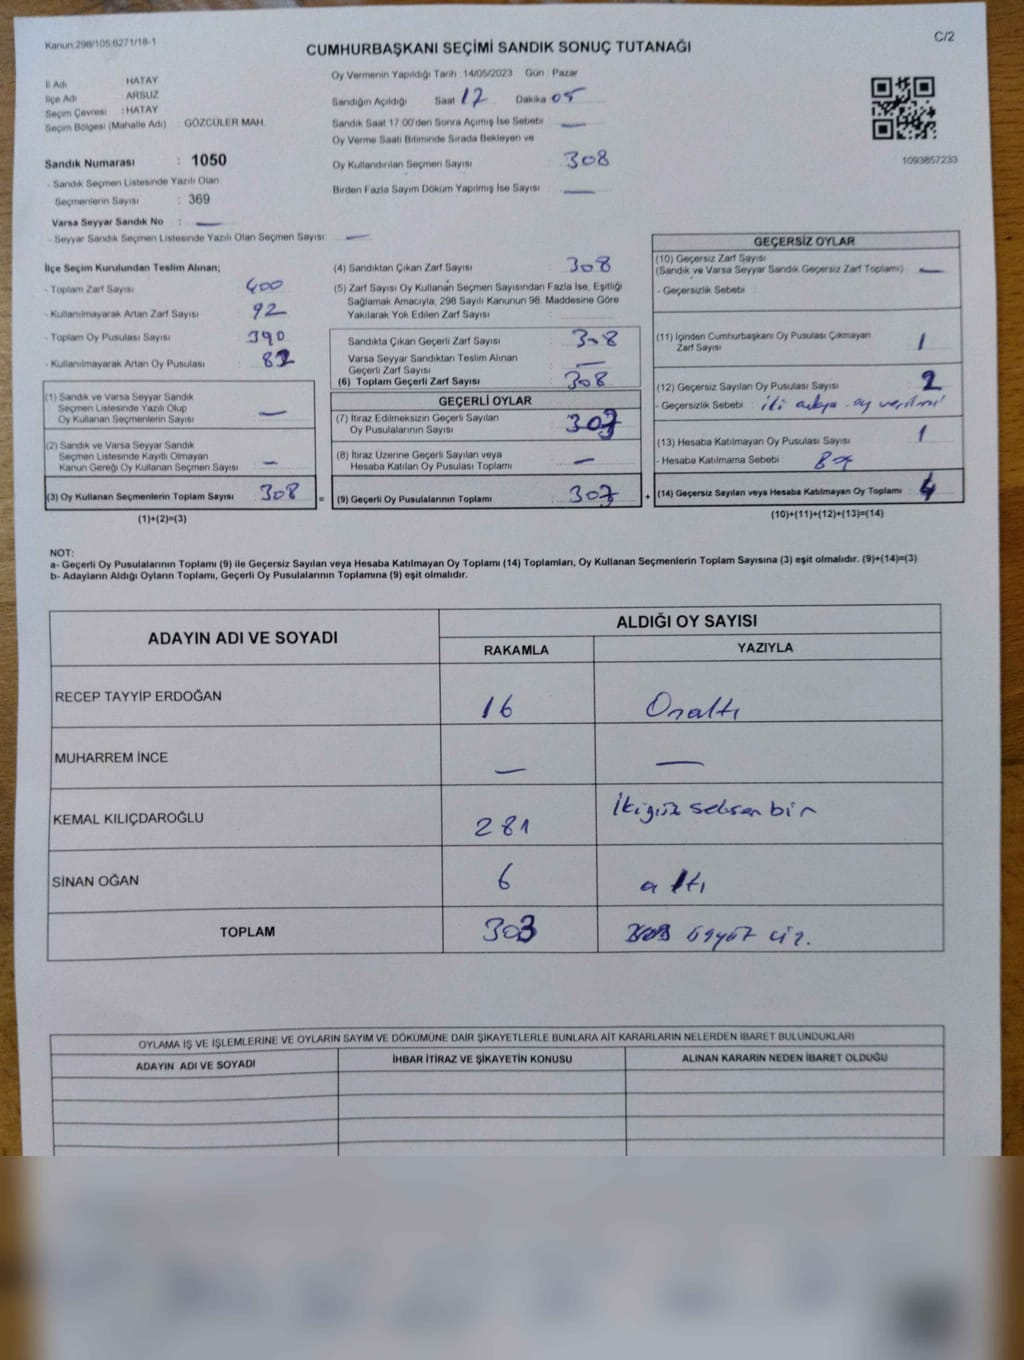 Kanun:298/105,6271/18-1
C/2
CUMHURBAŞKANI SEÇİMİ SANDIK SONUÇ TUTANAĞI
İl Adı : HATAY
İlçe Adı : ARSUZ
Seçim Çevresi : HATAY
Seçim Bölgesi (Mahalle Adı) : GÖZCÜLER MAH.
Sandık Numarası : 1050
- Sandık Seçmen Listesinde Yazılı Olan
Seçmenlerin Sayısı : 369
Varsa Seyyar Sandık No : —
- Seyyar Sandık Seçmen Listesinde Yazılı Olan Seçmen Sayısı: —
Oy Vermenin Yapıldığı Tarih : 14/05/2023 Gün : Pazar
Sandığın Açıldığı Saat 17 Dakika 05
Sandık Saat 17.00'den Sonra Açımış İse Sebebi : —
Oy Verme Saati Bitiminde Sırada Bekleyen ve
Oy Kullandırılan Seçmen Sayısı : 308
Birden Fazla Sayım Döküm Yapılmış İse Sayısı : —
1093857233
İlçe Seçim Kurulundan Teslim Alınan;
- Toplam Zarf Sayısı : 400
- Kullanılmayarak Artan Zarf Sayısı : 92
- Toplam Oy Pusulası Sayısı : 390
- Kullanılmayarak Artan Oy Pusulası : 82
(1) Sandık ve Varsa Seyyar Sandık
Seçmen Listesinde Yazılı Olup
Oy Kullanan Seçmenlerin Sayısı : —
(2) Sandık ve Varsa Seyyar Sandık
Seçmen Listesinde Kayıtlı Olmayan
Kanun Gereği Oy Kullanan Seçmen Sayısı : —
(3) Oy Kullanan Seçmenlerin Toplam Sayısı : 308
(1)+(2)=(3)
=
(4) Sandıktan Çıkan Zarf Sayısı : 308
(5) Zarf Sayısı Oy Kullanan Seçmen Sayısından Fazla İse, Eşitliği
Sağlamak Amacıyla, 298 Sayılı Kanunun 98. Maddesine Göre
Yakılarak Yok Edilen Zarf Sayısı :
Sandıkta Çıkan Geçerli Zarf Sayısı : 308
Varsa Seyyar Sandıktan Teslim Alınan
Geçerli Zarf Sayısı : —
(6) Toplam Geçerli Zarf Sayısı : 308
GEÇERLİ OYLAR
(7) İtiraz Edilmeksizin Geçerli Sayılan
Oy Pusulalarının Sayısı : 303
(8) İtiraz Üzerine Geçerli Sayılan veya
Hesaba Katılan Oy Pusulası Toplamı : —
(9) Geçerli Oy Pusulalarının Toplamı : 303
+
GEÇERSİZ OYLAR
(10) Geçersiz Zarf Sayısı
(Sandık ve Varsa Seyyar Sandık Geçersiz Zarf Toplamı) : —
- Geçersizlik Sebebi :
(11) İçinden Cumhurbaşkanı Oy Pusulası Çıkmayan
Zarf Sayısı : 1
(12) Geçersiz Sayılan Oy Pusulası Sayısı : 2
- Geçersizlik Sebebi : iki oy
(13) Hesaba Katılmayan Oy Pusulası Sayısı : 1
- Hesaba Katılmama Sebebi :
(14) Geçersiz Sayılan veya Hesaba Katılmayan Oy Toplamı : 4
(10)+(11)+(12)+(13)=(14)
NOT:
a- Geçerli Oy Pusulalarının Toplamı (9) ile Geçersiz Sayılan veya Hesaba Katılmayan Oy Toplamı (14) Toplamları, Oy Kullanan Seçmenlerin Toplam Sayısına (3) eşit olmalıdır. (9)+(14)=(3)
b- Adayların Aldığı Oyların Toplamı, Geçerli Oy Pusulalarının Toplamına (9) eşit olmalıdır.
ADAYIN ADI VE SOYADI
ALDIĞI OY SAYISI
RAKAMLA YAZIYLA
RECEP TAYYİP ERDOĞAN 16 Onaltı
MUHARREM İNCE — —
KEMAL KILIÇDAROĞLU 281 İkiyüz seksen bir
SİNAN OĞAN 6 altı
TOPLAM 303 üçyüz
OYLAMA İŞ VE İŞLEMLERİNE VE OYLARIN SAYIM VE DÖKÜMÜNE DAİR ŞİKAYETLERLE BUNLARA AİT KARARLARIN NELERDEN İBARET BULUNDUKLARI
ADAYIN ADI VE SOYADI İHBAR İTİRAZ VE ŞİKAYETİN KONUSU ALINAN KARARIN NEDEN İBARET OLDUĞU